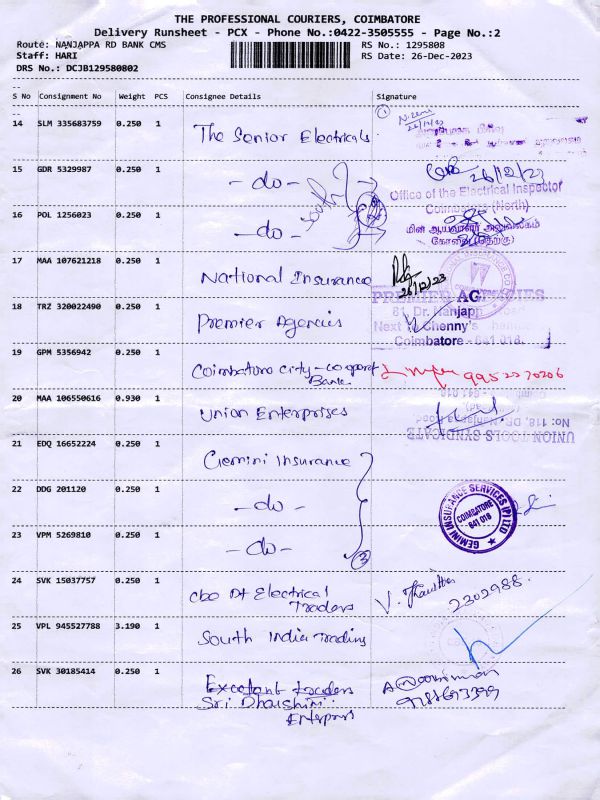 THE PROFESSIONAL COURIERS, COIMBATORE
Delivery Runsheet - PCX - Phone No.:0422-3505555 - Page No.:2
Route: NANJAPPA RD BANK CMS
RS No.: 1295808
Staff: HARI
RS Date: 26-Dec-2023
DRS No.: DCJB129580802
S No Consignment No Weight PCS Consignee Details Signature
14 SLM 335683759 0.250 1 The Senior Electricals
26/12/23
15 GDR 5329987 0.250 1 -do- 26/12/23
Office of the Electrical Inspector
Coimbatore (North)
16 POL 1256023 0.250 1 -do-
South
மின் ஆய்வாளர் அலுவலகம்
கோவை (தெற்கு)
17 MAA 107621218 0.250 1 National Insurance
26/12/23
18 TRZ 320022490 0.250 1 Premier Agencies
PREMIER AGENCIES
81, Dr. Nanjappa Road
Next To Chenny's
Coimbatore - 641 018.
19 GPM 5356942 0.250 1 Coimbatore City - Co operat Bank 9952270206
20 MAA 106550616 0.930 1 Union Enterprises
UNION TOOLS SYNDICATE
No: 118, DR. Nanjappa Road
21 EDQ 16652224 0.250 1 Gemini Insurance
22 DDG 201120 0.250 1 -do-
GEMINI INSURANCE SERVICES (P) LTD
COIMBATORE
641 018
23 VPM 5269810 0.250 1 -do-
3
24 SVK 15037757 0.250 1 Electrical Traders
2302988
25 VPL 945527788 3.190 1 South India Trading
26 SVK 30185414 0.250 1 Excellant traders
Sri Dharshini
Enterprises